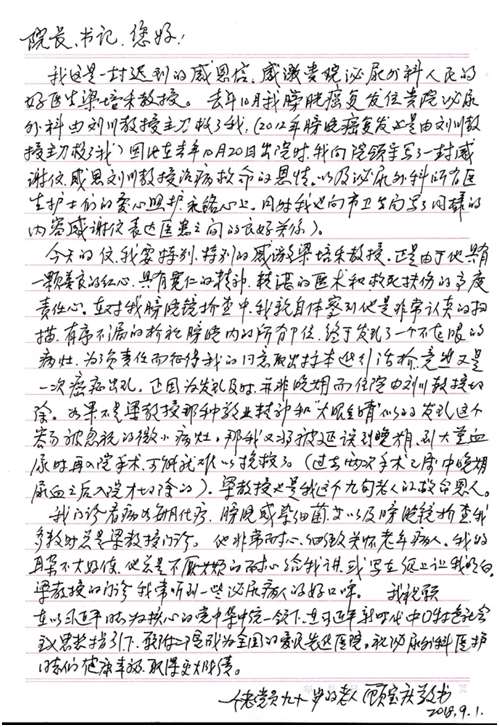 院长、书记，您好！
我这是一封迟到的感恩信，感激贵院泌尿外科人民的
好医生梁培禾教授。去年10月我膀胱癌复发住贵院泌尿
外科由刘川教授主刀救了我，(2012年膀胱癌复发也是由刘川教
授主刀救了我)因此在去年10月20日出院时，我向院领导写了一封感
谢信，感恩刘川教授治病救命的恩情。以及泌尿外科所有医
生护士们的爱心照护永铭心上。同时我也向市卫生局写了同样的
内容感谢信表达医患之间的良好关系)。
今天的信，我要特别、特别的感谢梁培禾教授。正是由于他具有
一颗善良的红心，具有宽仁的精神，精湛的医术和救死扶伤的高度
责任心。在对我膀胱镜检查中，我亲自体察到他是非常认真的扫
描，有序不漏的检视膀胱内的所有部位，终于发现了一个不起眼的
病灶，为负责任而征得我的同意取出标本进行活检，竟然又是
一次癌症出现。正因为发现及时，并非晚期而住院由刘川教授切
除。如果不是梁教授那种敬业精神和"火眼金睛"似的发现这个
容易被忽视的微小病灶。那我又将被延误到晚期，到大量血
尿时再入院手术，可能就难以挽救了。(过去两次手术之属中晚期
尿血之后入院才切除的)，梁教授也是我这个九旬老人的救命恩人。
我门诊看病为每月化疗，膀胱感染细菌，以及膀胱镜检查，我
多数时总是梁教授门诊。他非常耐心、细致关怀老年病人。我的
耳朵不太好使，他总是不厌其烦的耐心给我讲，或写在纸上让我明白。
梁教授的门诊我常听到一些泌尿病人的好口啤。我祝愿
在以习近平同志为核心的党中央集中统一领导下，在习近平新时代中国特色社会
主义思想指引下，祝附二院成为全国的爱民先进医院。祝泌尿外科医护
同志们健康幸福，取得更大成绩。
一位老党员九十岁的老人 顾宝庆敬书
2018.9.1.